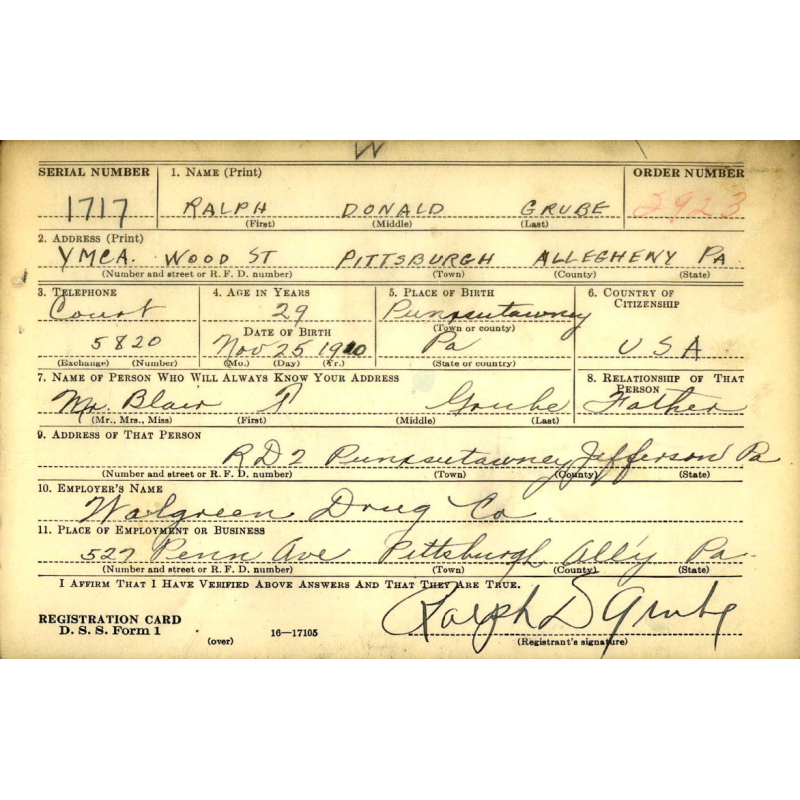 W
SERIAL NUMBER 1. NAME (Print) ORDER NUMBER
1717 RALPH DONALD GRUBE 2923
(First) (Middle) (Last)
2. ADDRESS (Print)
YMCA. WOOD ST PITTSBURGH ALLEGHENY PA.
(Number and street or R. F. D. number) (Town) (County) (State)
3. TELEPHONE 4. AGE IN YEARS 5. PLACE OF BIRTH 6. COUNTRY OF CITIZENSHIP
Court 29 Punxsutawney
(Town or county)
DATE OF BIRTH
5820 Nov 25 1910 Pa USA
(Exchange) (Number) (Mo.) (Day) (Yr.) (State or country)
7. NAME OF PERSON WHO WILL ALWAYS KNOW YOUR ADDRESS 8. RELATIONSHIP OF THAT PERSON
Mr. Blair T Grube Father
(Mr., Mrs., Miss) (First) (Middle) (Last)
9. ADDRESS OF THAT PERSON
RD2 Punxsutawney Jefferson Pa
(Number and street or R. F. D. number) (Town) (County) (State)
10. EMPLOYER'S NAME
Walgreen Drug Co.
11. PLACE OF EMPLOYMENT OR BUSINESS
527 Penn Ave Pittsburgh All'y Pa.
(Number and street or R. F. D. number) (Town) (County) (State)
I AFFIRM THAT I HAVE VERIFIED ABOVE ANSWERS AND THAT THEY ARE TRUE.
REGISTRATION CARD Ralph D Grube
D. S. S. Form 1 16—17105 (Registrant's signature)
(over)